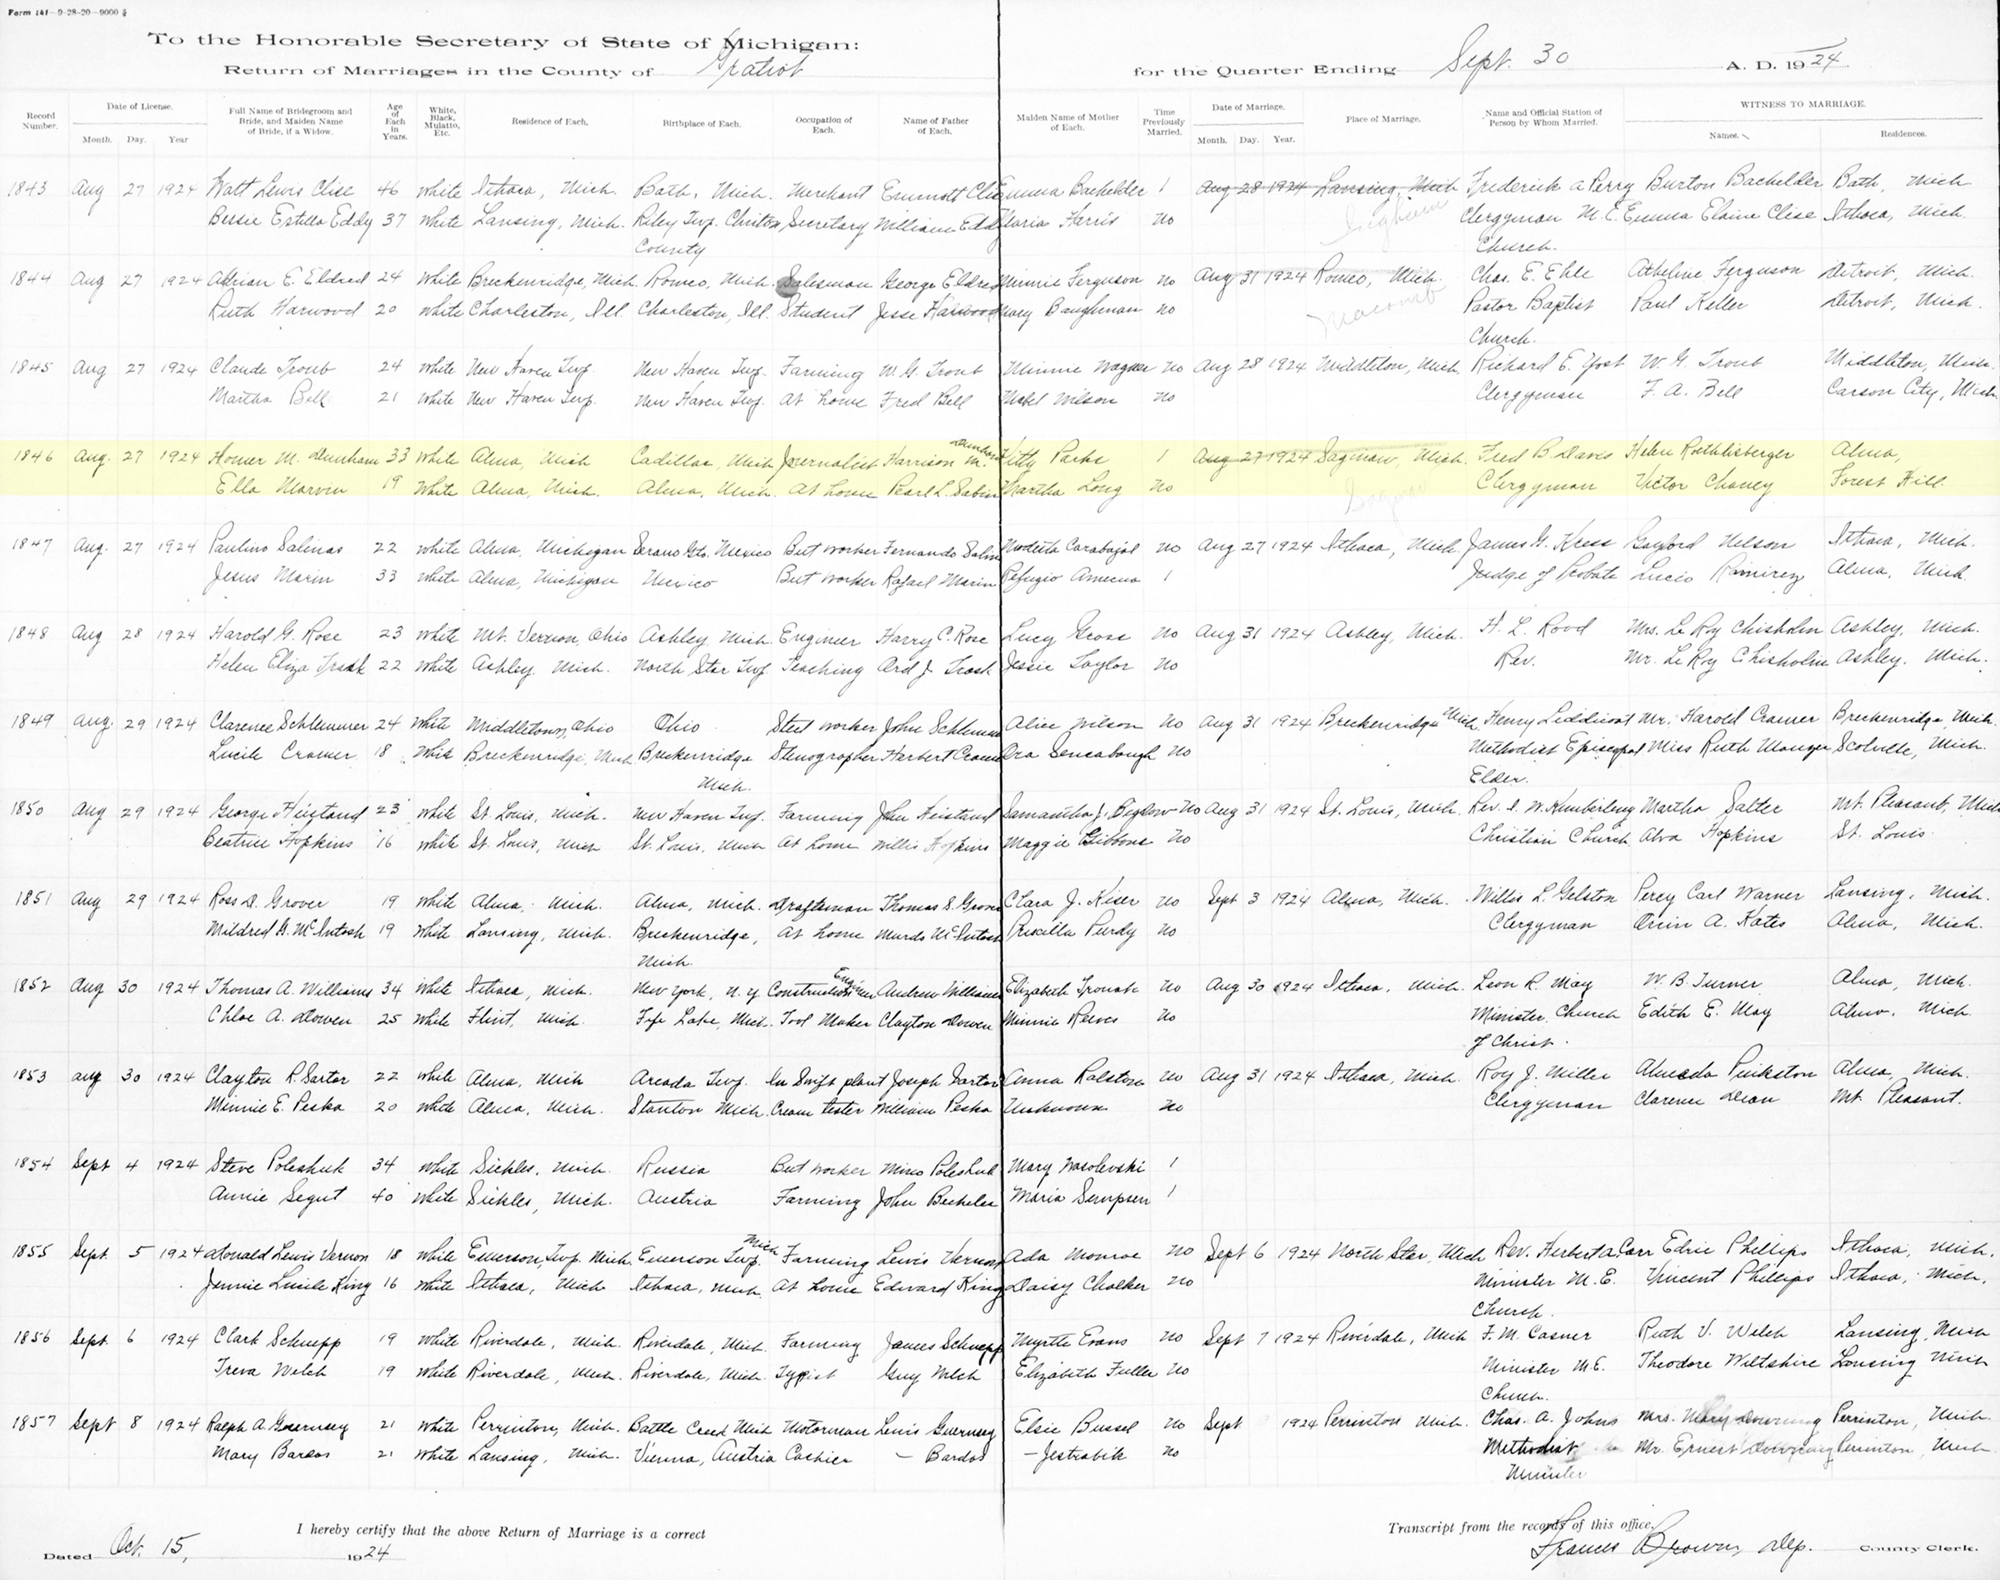 Form 141—9-28-20—9000
To the Honorable Secretary of State of Michigan:
Return of Marriages in the County of Gratiot for the Quarter Ending Sept. 30 A. D. 1924
Record Number. Date of License. Month. Day. Year Full Name of Bridegroom and Bride, and Maiden Name of Bride, if a Widow. Age of Each in Years. White, Black, Mulatto, Etc. Residence of Each. Birthplace of Each. Occupation of Each. Name of Father of Each. Maiden Name of Mother of Each. Time Previously Married. Date of Marriage. Month. Day. Year. Place of Marriage. Name and Official Station of Person by Whom Married. WITNESS TO MARRIAGE. Names. Residences.
1843 Aug 27 1924 Watt Lewis Clise 46 White Ithaca, Mich. Bath, Mich. Merchant Emmott Clise Emma Bachelder 1 Aug 28 1924 Lansing, Mich Frederick A Perry Burton Bachelder Bath, Mich
Bessie Estella Eddy 37 White Lansing, Mich. Riley Twp. Clinton Secretary William Eddy Maria Harris No Ingham Clergyman M. E. Emma Elaine Clise Ithaca, Mich.
County Church.
1844 Aug 27 1924 Adrian E. Eldred 24 White Breckenridge, Mich. Romeo, Mich. Salesman George Eldred Minnie Ferguson No Aug 31 1924 Romeo, Mich. Chas. E. Ehle Atheline Ferguson Detroit, Mich.
Ruth Harwood 20 White Charleston, Ill. Charleston, Ill. Student Jesse Harwood Mary Baughman No Macomb Pastor Baptist Paul Keller Detroit, Mich.
Church.
1845 Aug 27 1924 Claude Trout 24 White New Haven Twp. New Haven Twp. Farming W. G. Trout Minnie Wagner No Aug 28 1924 Middleton, Mich. Richard E. Yost W. G. Trout Middleton, Mich.
Martha Bell 21 White New Haven Twp. New Haven Twp. At home Fred Bell Wilson No Clergyman F. A. Bell Carson City, Mich.
1846 Aug. 27 1924 Homer M. Dunham 33 White Alma, Mich Cadillac, Mich Journalist Harrison M. Dunham Kitty Parks 1 Aug 27 1924 Saginaw, Mich. Fred B Davis Helen Rothlisberger Alma,
Ella Marvin 19 White Alma, Mich. Alma, Mich. At home Pearl L. Sabin Martha Long No Saginaw Clergyman Victor Chaney Forest Hill.
1847 Aug. 27 1924 Paulino Salinas 22 White Alma, Michigan Gto. Mexico Beet worker Fernando Salinas Modesta Carabajal No Aug 27 1924 Ithaca, Mich James G. Kress Gaylord Nelson Ithaca, Mich.
Jesus Marin 33 White Alma, Michigan Mexico Beet worker Rafael Marin Refugio 1 Judge of Probate Lucio Ramirez Alma, Mich.
1848 Aug 28 1924 Harold G. Rose 23 White Mt. Vernon, Ohio Ashley, Mich. Engineer Harry C. Rose Lucy No Aug 31 1924 Ashley, Mich. H. L. Rood Mrs. Le Roy Chisholm Ashley, Mich.
Helen Eliza Trask 22 White Ashley, Mich. North Star Twp. Teaching Ord J. Trask Jessie Taylor No Rev. Mr. Le Roy Chisholm Ashley, Mich.
1849 Aug. 29 1924 Clarence Schlemmer 24 White Middletown, Ohio Ohio Steel worker John Schlemmer Alice Wilson No Aug 31 1924 Breckenridge Mich. Henry Liddicoat Mr. Harold Cramer Breckenridge, Mich.
Lucile Cramer 18 White Breckenridge, Mich Breckenridge Stenographer Herbert Cramer Ora Sensabaugh No Methodist Episcopal Miss Ruth Scotville, Mich.
Mich. Elder.
1850 Aug 29 1924 George Heistand 23 White St. Louis, Mich. New Haven Twp. Farming John Heistand Samantha J. Biglow No Aug 31 1924 St. Louis, Mich. Rev. I. W. Kimberling Martha Salter Mt. Pleasant, Mich
Beatrice Hopkins 16 White St. Louis, Mich St. Louis, Mich At home Willis Hopkins Maggie Gibbons No Christian Church Alva Hopkins St. Louis
1851 Aug 29 1924 Ross D. Grover 19 White Alma, Mich. Alma, Mich. Draftsman Thomas S. Grover Clara J. Kiser No Sept 3 1924 Alma, Mich. Willis L. Gelston Percy Carl Warner Lansing, Mich.
Mildred G. McIntosh 19 White Lansing, Mich. Breckenridge, At home Murdo McIntosh Priscilla Purdy No Clergyman Orin A. Kates Alma, Mich.
Mich.
1852 Aug 30 1924 Thomas A. Williams 34 White Ithaca, Mich. New York, N. Y Construction Engineer Andrew Williams Elizabeth No Aug 30 1924 Ithaca, Mich. Leon R. May W. B. Turner Alma, Mich.
Chloe A. Dowen 25 White Flint, Mich. Fife Lake, Mich. Tool Maker Clayton Dowen Minnie Reeves No Minister Church Edith E. May Alma, Mich
of Christ.
1853 Aug 30 1924 Clayton R. Sartor 22 White Alma, Mich Arcada Twp. In Swift plant Joseph Sartor Anna Ralston No Aug 31 1924 Ithaca, Mich. Roy J. Miller Almeda Pinkston Alma, Mich.
Minnie E. Peska 20 White Alma, Mich. Stanton Mich. Cream tester William Peska Unknown No Clergyman Clarence Dean Mt. Pleasant.
1854 Sept 4 1924 Steve Poleshuk 34 White Sickles, Mich. Russia Beet worker Poleshuk Mary 1
Annie Segut 40 White Sickles, Mich. Austria Farming John Maria 1
1855 Sept. 5 1924 Donald Lewis Vernon 18 White Emerson, Twp. Mich. Emerson Twp. Mich Farming Lewis Vernon Ada Monroe No Sept 6 1924 North Star, Mich Rev. Herbert A. Carr Edric Phillips Ithaca, Mich.
Jennie Lucile King 16 White Ithaca, Mich Ithaca, Mich. At home Edward King Daisy Chalker No Minister M. E. Vincent Phillips Ithaca, Mich.
Church.
1856 Sept. 6 1924 Clark Schnepp 19 White Riverdale, Mich. Riverdale, Mich. Farming James Schnepp Myrtle Evans No Sept 7 1924 Riverdale, Mich F. M. Casner Ruth V. Welch Lansing, Mich
Treva Welch 19 White Riverdale, Mich. Riverdale, Mich. Typist Guy Welch Elizabeth Fuller No Minister M.E. Theodore Wiltshire Lansing Mich
Church.
1857 Sept 8 1924 Ralph A. Guernsey 21 White Perrinton, Mich. Battle Creek Mich Motorman Lewis Guernsey Elsie Bussel No Sept 1924 Perrinton Mich. Chas. A. Johns Mrs. Mary Downing Perrinton, Mich.
Mary Bardos 21 White Lansing, Mich. Vienna, Austria Cashier — Bardos — Jestrabik No Methodist Mr. Ernest Downing Perrinton, Mich
Minister
I hereby certify that the above Return of Marriage is a correct Transcript from the records of this office.
Dated Oct. 15, 1924 Frances Brown, Dep. County Clerk.